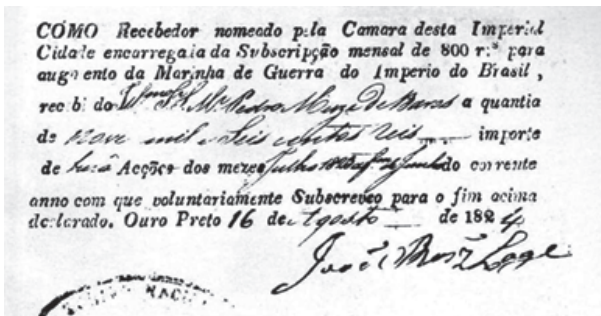 COMO Recebedor nomeado pela Camara desta Imperial
Cidade encarregada da Subscripção mensal de 800 r.ˢ para
augmento da Marinha de Guerra do Imperio do Brasil,
recebi do Pedro a quantia
de Nove mil e Seis centos reis importe
de Acções dos mezes Julho do corrente
anno com que voluntariamente Subscreveo para o fim acima
declarado. Ouro Preto 16 de Agosto de 1824